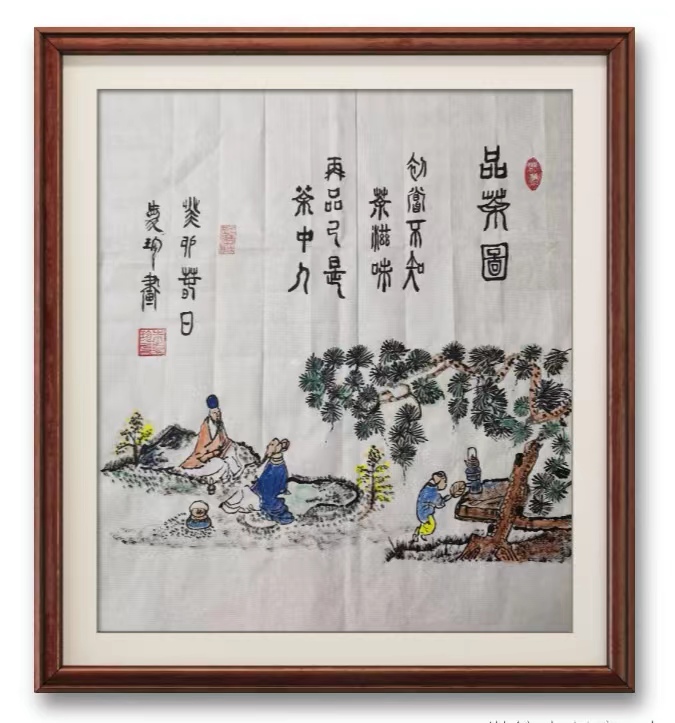 品茶圖
初嘗不知
茶滋味
再品已是
茶中人
癸卯春日
珍畫